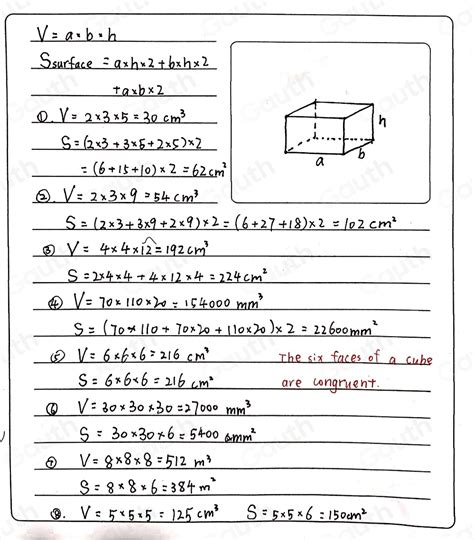 V = a × b × h
Ssurface = a×h×2 + b×h×2
+a×b×2
①. V = 2×3×5 = 30 cm³
S = (2×3 + 3×5 + 2×5)×2
= (6+15+10)×2 = 62cm²
②. V = 2×3×9 = 54 cm³
S = (2×3 + 3×9 + 2×9)×2 = (6+27+18)×2 = 102 cm²
③ V = 4×4×12 = 192cm³
S = 2×4×4 + 4×12×4 = 224cm²
④ V = 70×110×20 = 154000 mm³
S = (70×110 + 70×20 + 110×20)×2 = 22600mm²
⑤ V = 6×6×6 = 216 cm³
S = 6×6×6 = 216 cm²
The six faces of a cube
are congruent.
⑥ V = 30×30×30 = 27000 mm³
S = 30×30×6 = 5400 mm²
⑦ V = 8×8×8 = 512 m³
S = 8×8×6 = 384 m²
⑧. V = 5×5×5 = 125 cm³ S = 5×5×6 = 150cm²
h
a b
Gauth